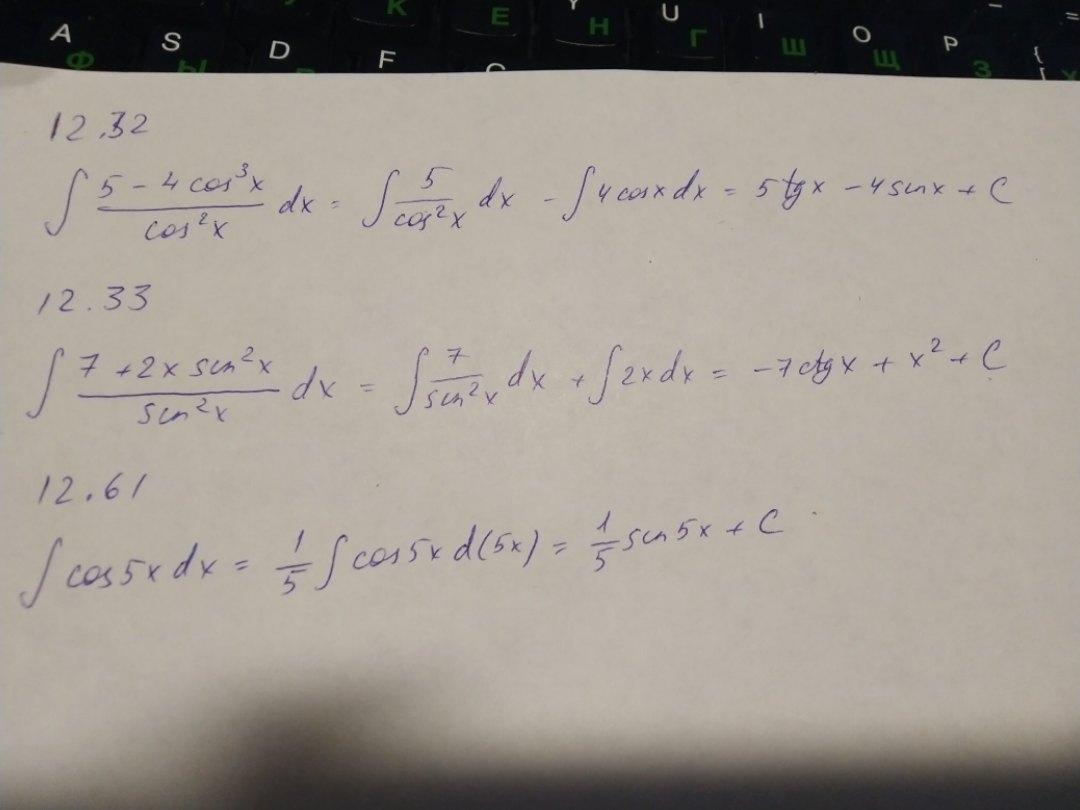 K E Y Н U Г I Ш O Щ P З { [ Х
A Ф S Ы D F
12.32
∫ (5 - 4 cos³x)/(cos²x) dx = ∫ 5/(cos²x) dx - ∫ 4 cosx dx = 5 tg x - 4 sin x + C
12.33
∫ (7 + 2x sin²x)/(sin²x) dx = ∫ 7/(sin²x) dx + ∫ 2x dx = -7 ctg x + x² + C
12.61
∫ cos 5x dx = 1/5 ∫ cos 5x d(5x) = 1/5 sin 5x + C